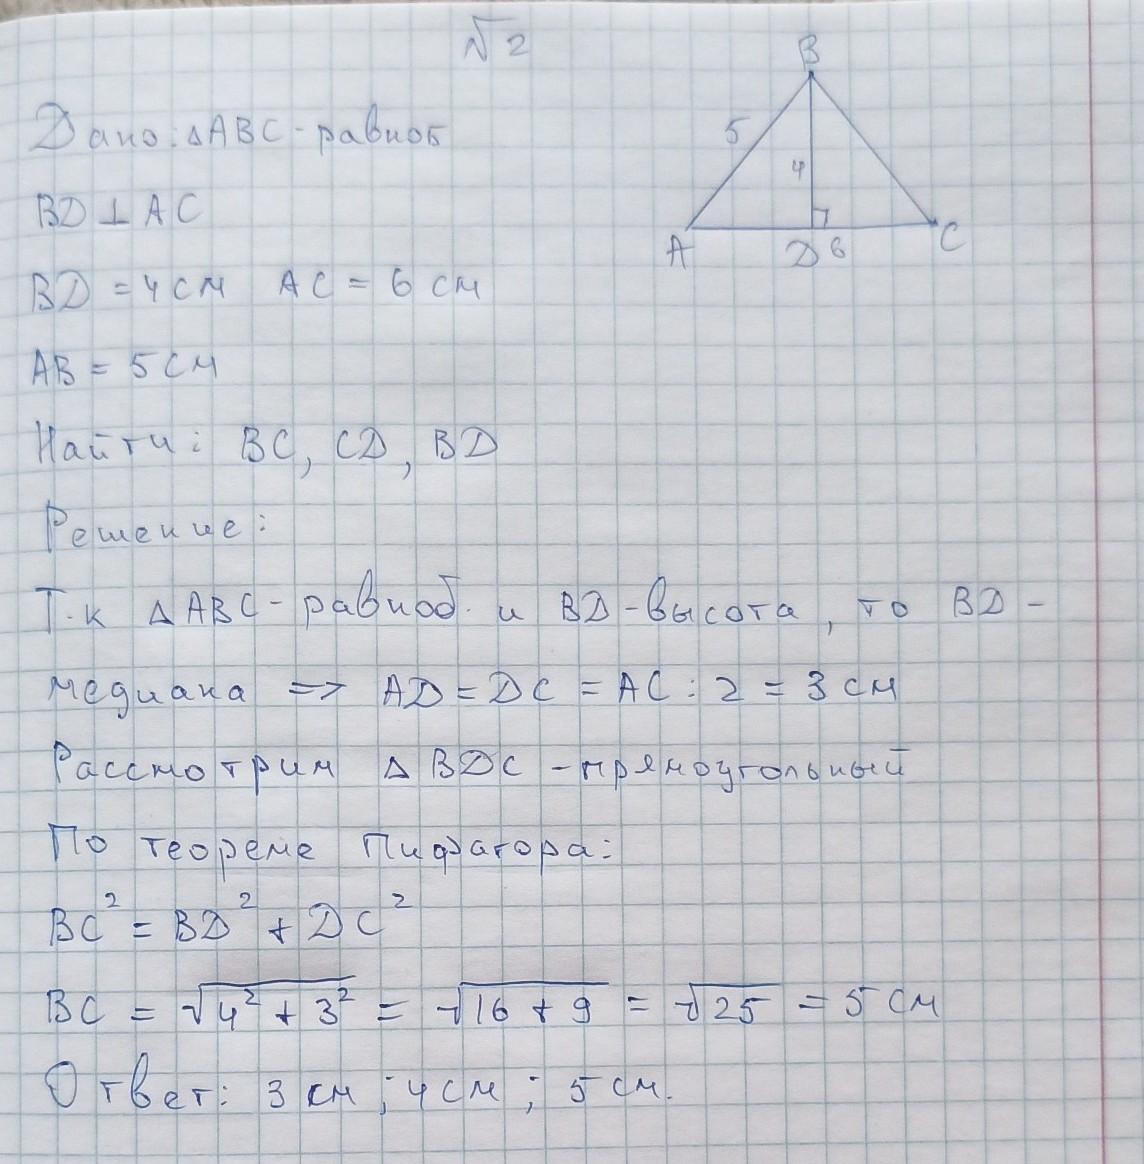 √2
B
Дано: △ABC - равноб
5
4
BD ⊥ AC
A D 6 C
BD = 4 см AC = 6 см
AB = 5 см
Найти: BC, CD, BD
Решение:
Т.к △ABC - равноб. и BD - высота, то BD -
медиана => AD = DC = AC : 2 = 3 см
Рассмотрим △ BDC - прямоугольный
По теореме Пифагора:
BC² = BD² + DC²
BC = √4² + 3² = √16 + 9 = √25 = 5 см
Ответ: 3 см ; 4 см ; 5 см.